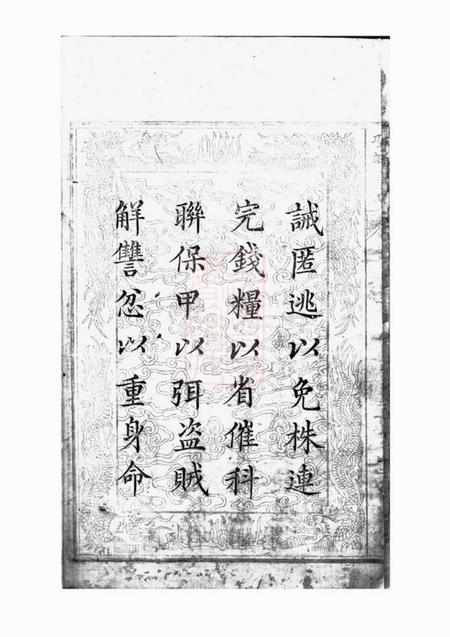 誡匿逃以免株連
完錢糧以省催科
聨保甲以弭盗賊
解讐忿以重身命